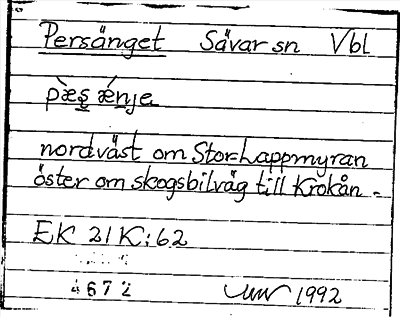 Persänget Sävar sn Vbl
pæ̀s̲ ǽn̲je
nordväst om Stor-Lappmyran
öster om skogsbilväg till Krokån -
EK 21K:62
4672 1992